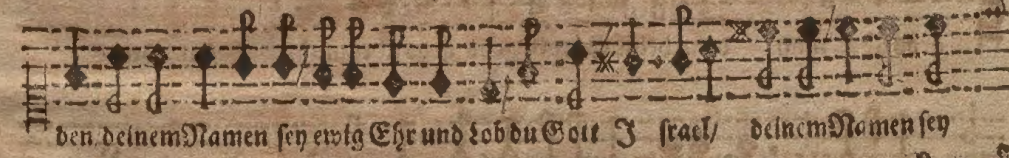 den, deinem Namen sey ewig Ehr und Lob du Gott J srael/ deinem Namen sey